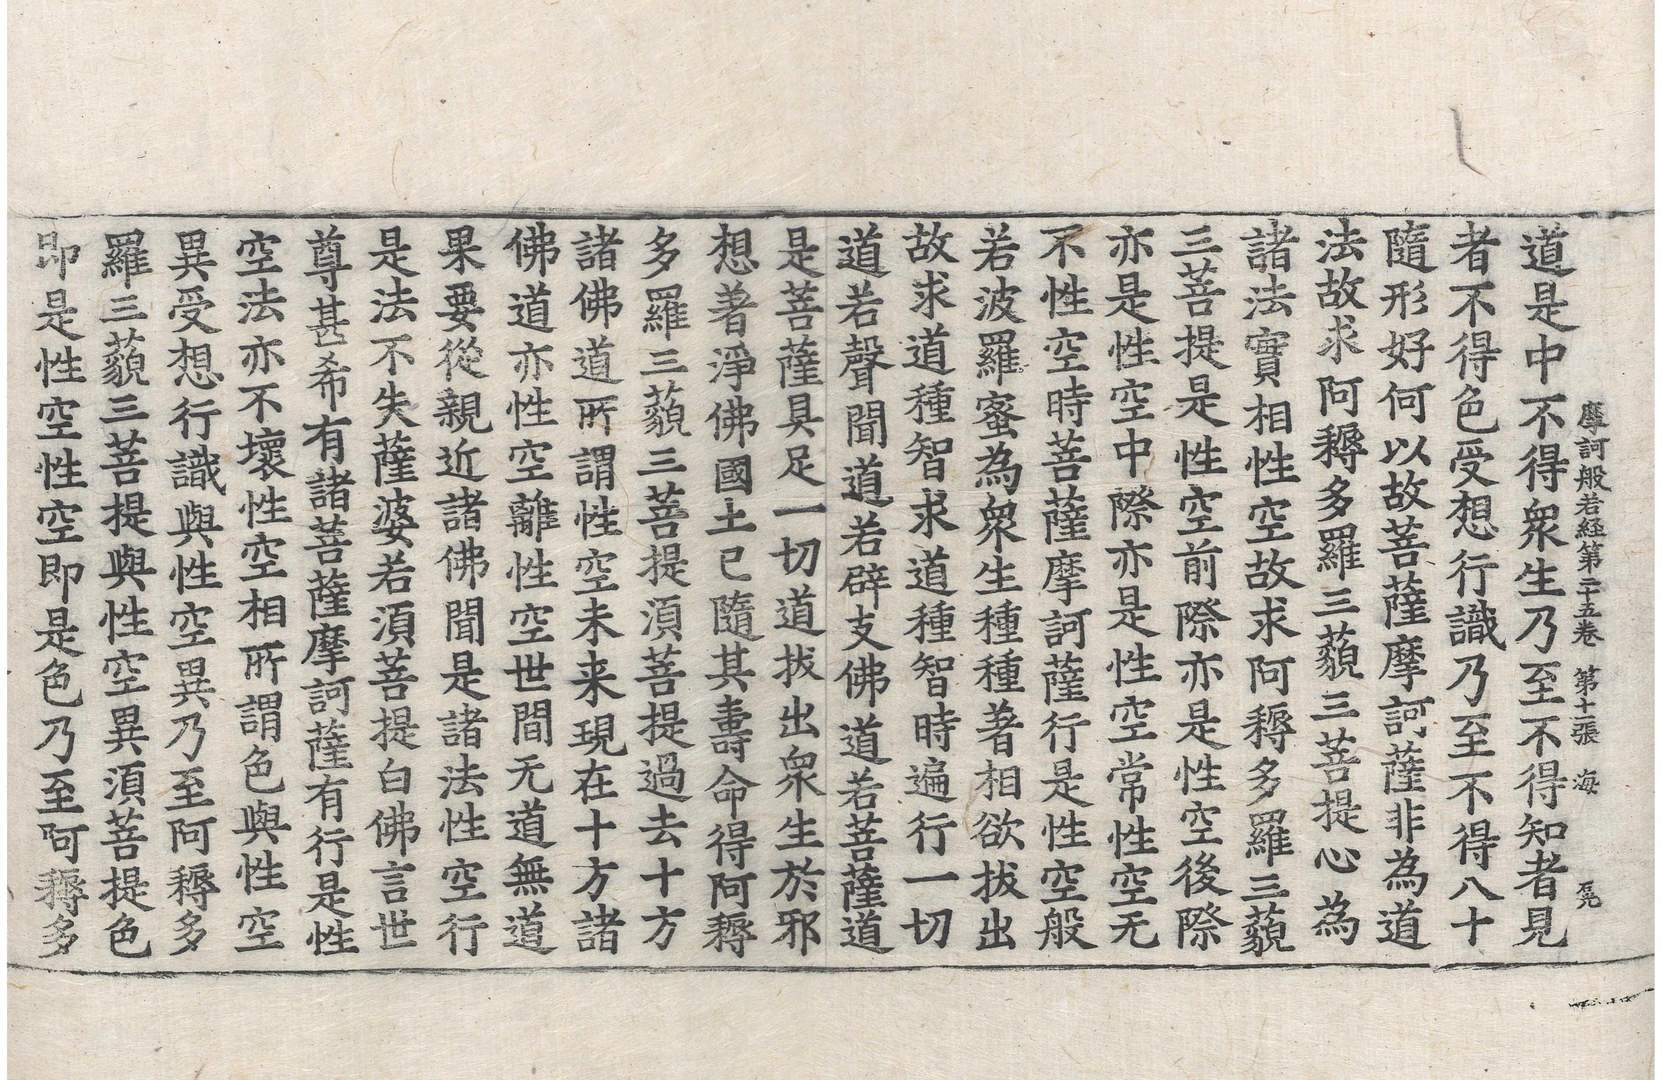 摩訶般若経第二十五巻 第十二張 海
道是中不得衆生乃至不得知者見
者不得色受想行識乃至不得八十
隨形好何以故菩薩摩訶薩非為道
法故求阿耨多羅三藐三菩提心為
諸法實相性空故求阿耨多羅三藐
三菩提是性空前際亦是性空後際
亦是性空中際亦是性空常性空无
不性空時菩薩摩訶薩行是性空般
若波羅蜜為衆生種種著相欲拔出
故求道種智求道種智時遍行一切
道若聲聞道若辟支佛道若菩薩道
是菩薩具足一切道拔出衆生於邪
想著淨佛國土已隨其壽命得阿耨
多羅三藐三菩提須菩提過去十方
諸佛道所謂性空未来現在十方諸
佛道亦性空離性空世間无道無道
果要從親近諸佛聞是諸法性空行
是法不失薩婆若須菩提白佛言世
尊甚希有諸菩薩摩訶薩有行是性
空法亦不壞性空相所謂色與性空
異受想行識與性空異乃至阿耨多
羅三藐三菩提與性空異須菩提色
即是性空性空即是色乃至阿耨多